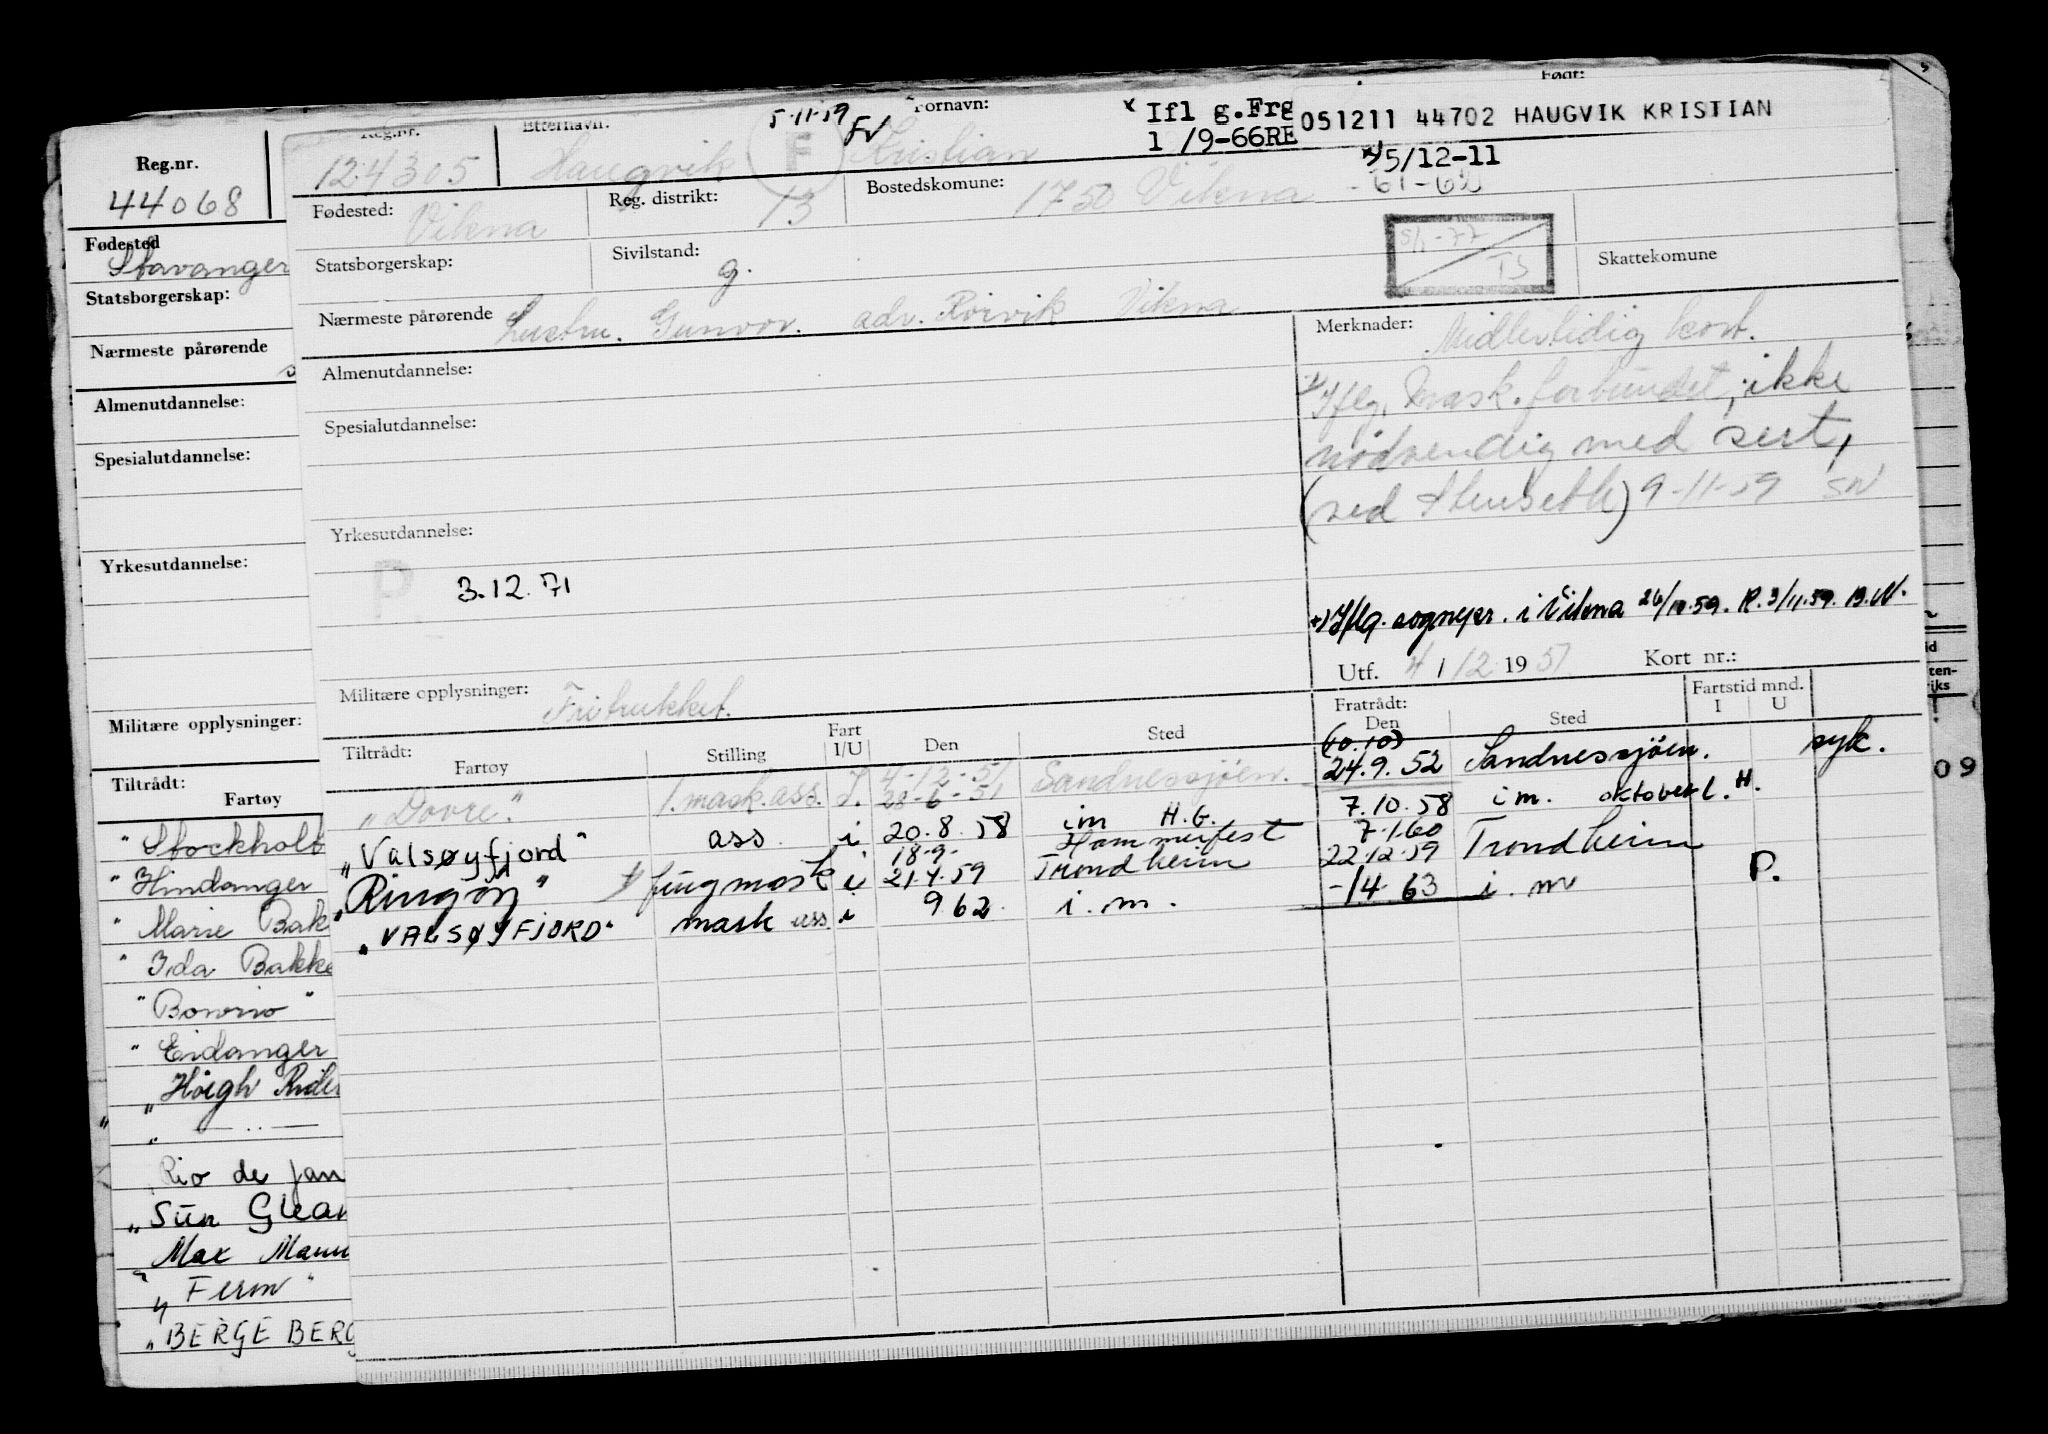 Født:
Reg.nr.
Etternavn:
5-11-59
FV
Fornavn:
x Ifl g.Frg
051211 44702 HAUGVIK KRISTIAN
124305
Haugvik
F
Kristian
1 /9-66RE
x) 5/12-11
Reg.nr.
44068
Fødested:
Vikna
Reg. distrikt:
13
Bostedskomune:
1750 Vikna
-61-62
Fødested
Stavanger
Statsborgerskap:
Sivilstand:
g.
5/1-77
TS
Skattekomune
Statsborgerskap:
Nærmeste pårørende
Hustru. Gunvor. adr. Rörvik Vikna
Merknader:
Midlertidig kort.
Nærmeste pårørende
Almenutdannelse:
Iflg. Mask.forbundet, ikke
nödvendig med sert,
Almenutdannelse:
Spesialutdannelse:
9-11-59 SN
Spesialutdannelse:
Yrkesutdannelse:
Yrkesutdannelse:
P
3.12.71
x) Iflg. sognepr. i Vikna 26/10.59. R. 3/11.59. B.N.
Utf. 4/12 1951
Kort nr.:
Militære opplysninger:
Fritrukket.
Militære opplysninger:
Tiltrådt:
Fartøy
Stilling
Fart
I/U
Den
Sted
Fratrådt:
Den
Sted
Fartstid mnd.
I
U
"Dovre."
1. mask.ass.
I.
4-12-51
28-6-51
Sandnessjöen.
(10.10)
24.9.52
Sandnessjöen.
syk.
"Valsøyfjord"
ass
i
20.8.58
im H.G.
7.10.58
im. oktober l.H.
"Ringön"
fung mask
i
18-9-
21.4.59
Hammerfest
Trondheim
7.1.60
22.12.59
Trondheim
"VALSØYFJORD"
mask ass
i
9.62
i.m.
-14.63
i.m
P.
Tiltrådt:
Fartøy
"Stockhol
"Hindanger
"Marie Bak
"Ida Bakke
"Bowrio"
"Eidanger
"Höegh Rider
" — .. —
Rio de Jan
"Sun Glear
Max Manu
"Fernn"
"BERGE BERG
09